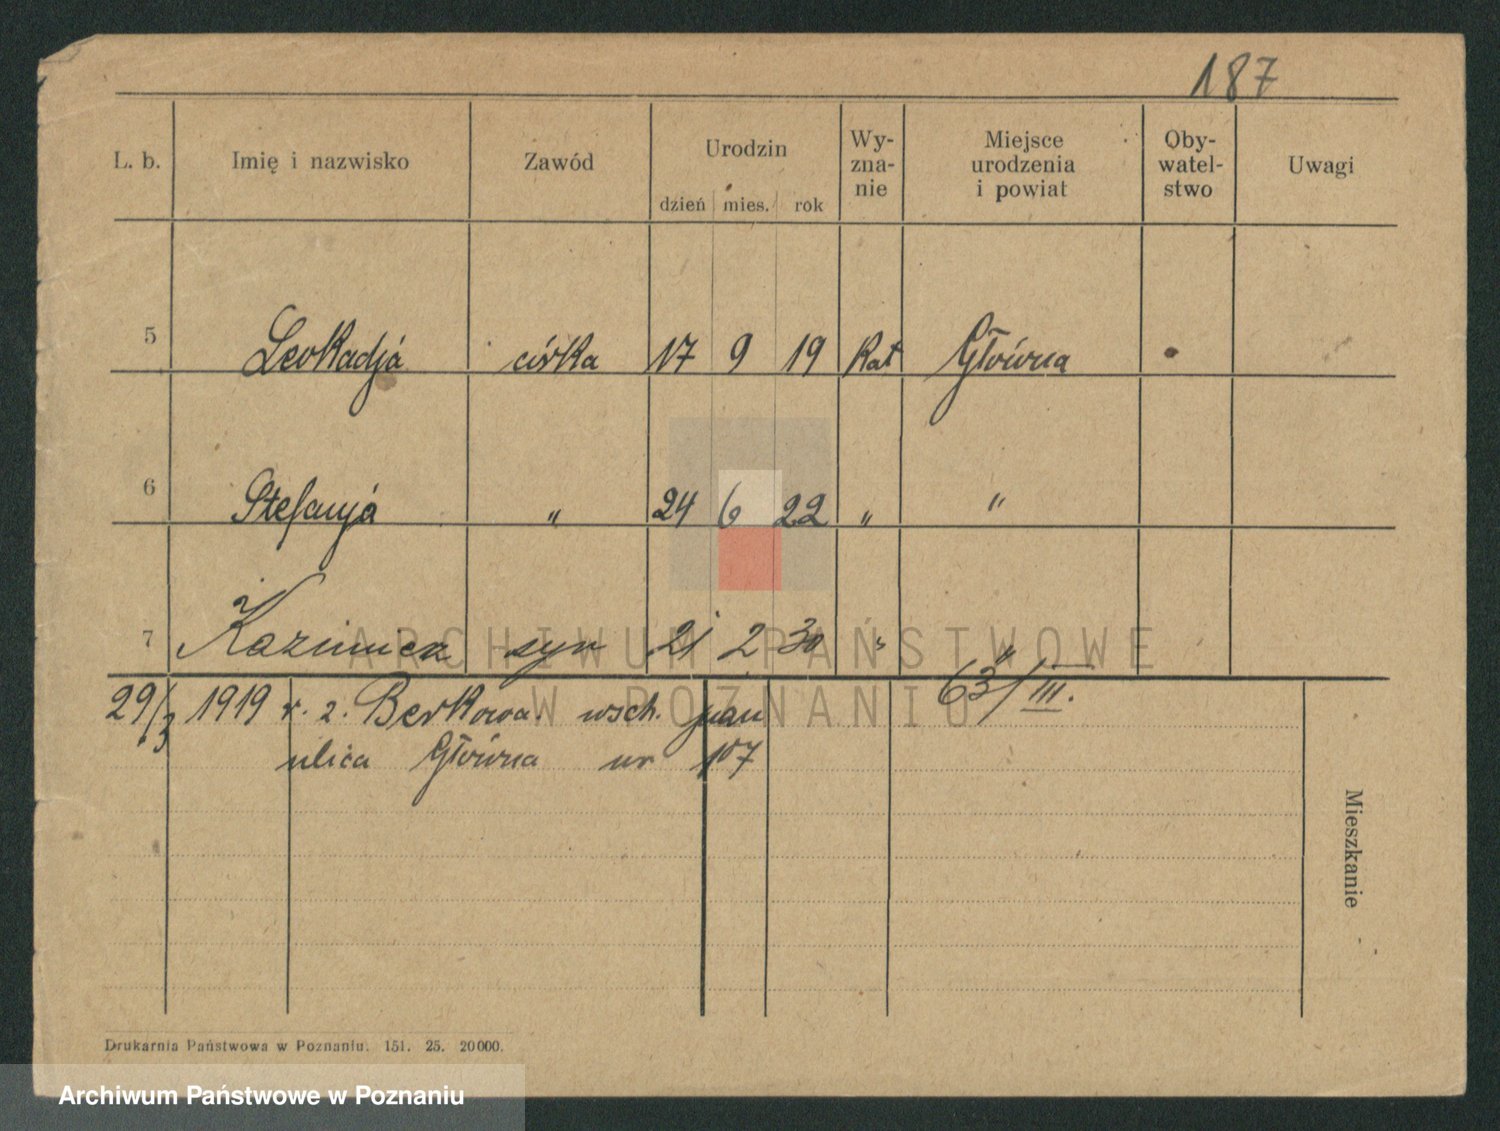 187
L. b. Imię i nazwisko Zawód Urodzin Wy- zna- nie Miejsce urodzenia i powiat Oby- watel- stwo Uwagi
dzień mies. rok
5 Leokadja córka 17 9 19 Kat Główna
6 Stefanja " 24 6 22 " "
7 Kazimierz syn 21 2 30 " "
ARCHIWUM PAŃSTWOWE
W POZNANIU
29/3 1919 r. z. Berkowa. wsch. 63/III.
ulica Główna nr 107
Mieszkanie
Drukarnia Państwowa w Poznaniu. 151. 25. 20000.
Archiwum Państwowe w Poznaniu